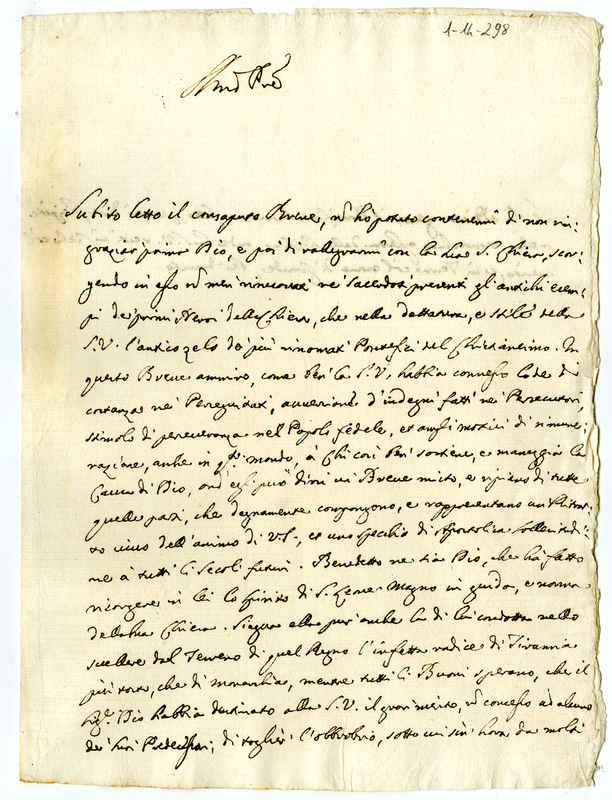 1-14-298
Subito letto il consaputo Breve, nõ hò potuto contenermi di non rin:
graziar prima Dio, e poi di rallegrarmi con la sua S. Chiesa, scor:
gendo in esso nõ men rinovati ne' Sacerdoti presenti gli antichi esem:
pi de' primi Heroi della Chiesa, che nella dettatura, e stile della
S.V. l'antico zelo de' più rinomati Pontefici del Christianesimo. In
questo Breve ammiro, come ben la S.V. habbia connesso lode di
costanza ne' Perseguitati, avversione d'indegni fatti ne' Persecutori,
stimolo di perseveranza nel Popolo fedele, et ampli motivi di rimune:
razione, anche in qto mondo, à chi così ben sostiene, e maneggia la
Causa di Dio, onde egli può dirsi un Breve misto, e ripieno di tutte
quelle parti, che degnamente compongono, e rappresentano un Ritrat:
to vivo dell'animo di VS., et uno specchio di Apostolica sollecitudi:
ne à tutti li Secoli futuri. Benedetto ne sia Dio, che hà fatto
risorgere in lei lo spirito di S. Leone Magno in guida, e norma
della sua Chiesa. Siegua ella pur anche la di lui condotta nello
svellere dal Terreno di quel Regno l'infetta radice di Tirannia
più tosto, che di monarchia, mentre tutti li Buoni sperano, che il
Sig. Dio habbia destinato alla S.V. il gran merito, nõ concesso ad alcuno
de' suoi Predecessori, di toglier l'obbrobrio, sotto cui sin' hora da molti